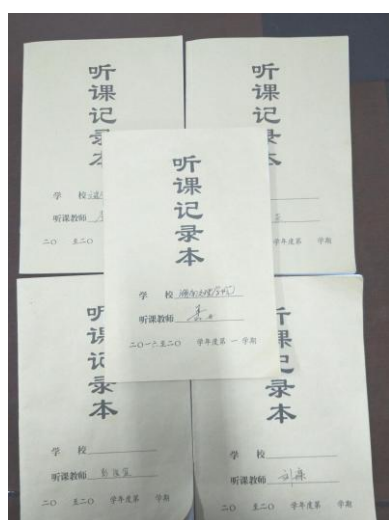 听课记录本
学 校
听课教师
二〇 至二〇
听课记录本
学年度第 学期
听课记录本
学 校
听课教师
二〇一六至二〇 学年度第一学期
听课记录本
学 校
听课教师
二〇 至二〇 学年度第 学期
听课记录本
学 校
听课教师 刘
二〇 至二〇 学年度第 学期